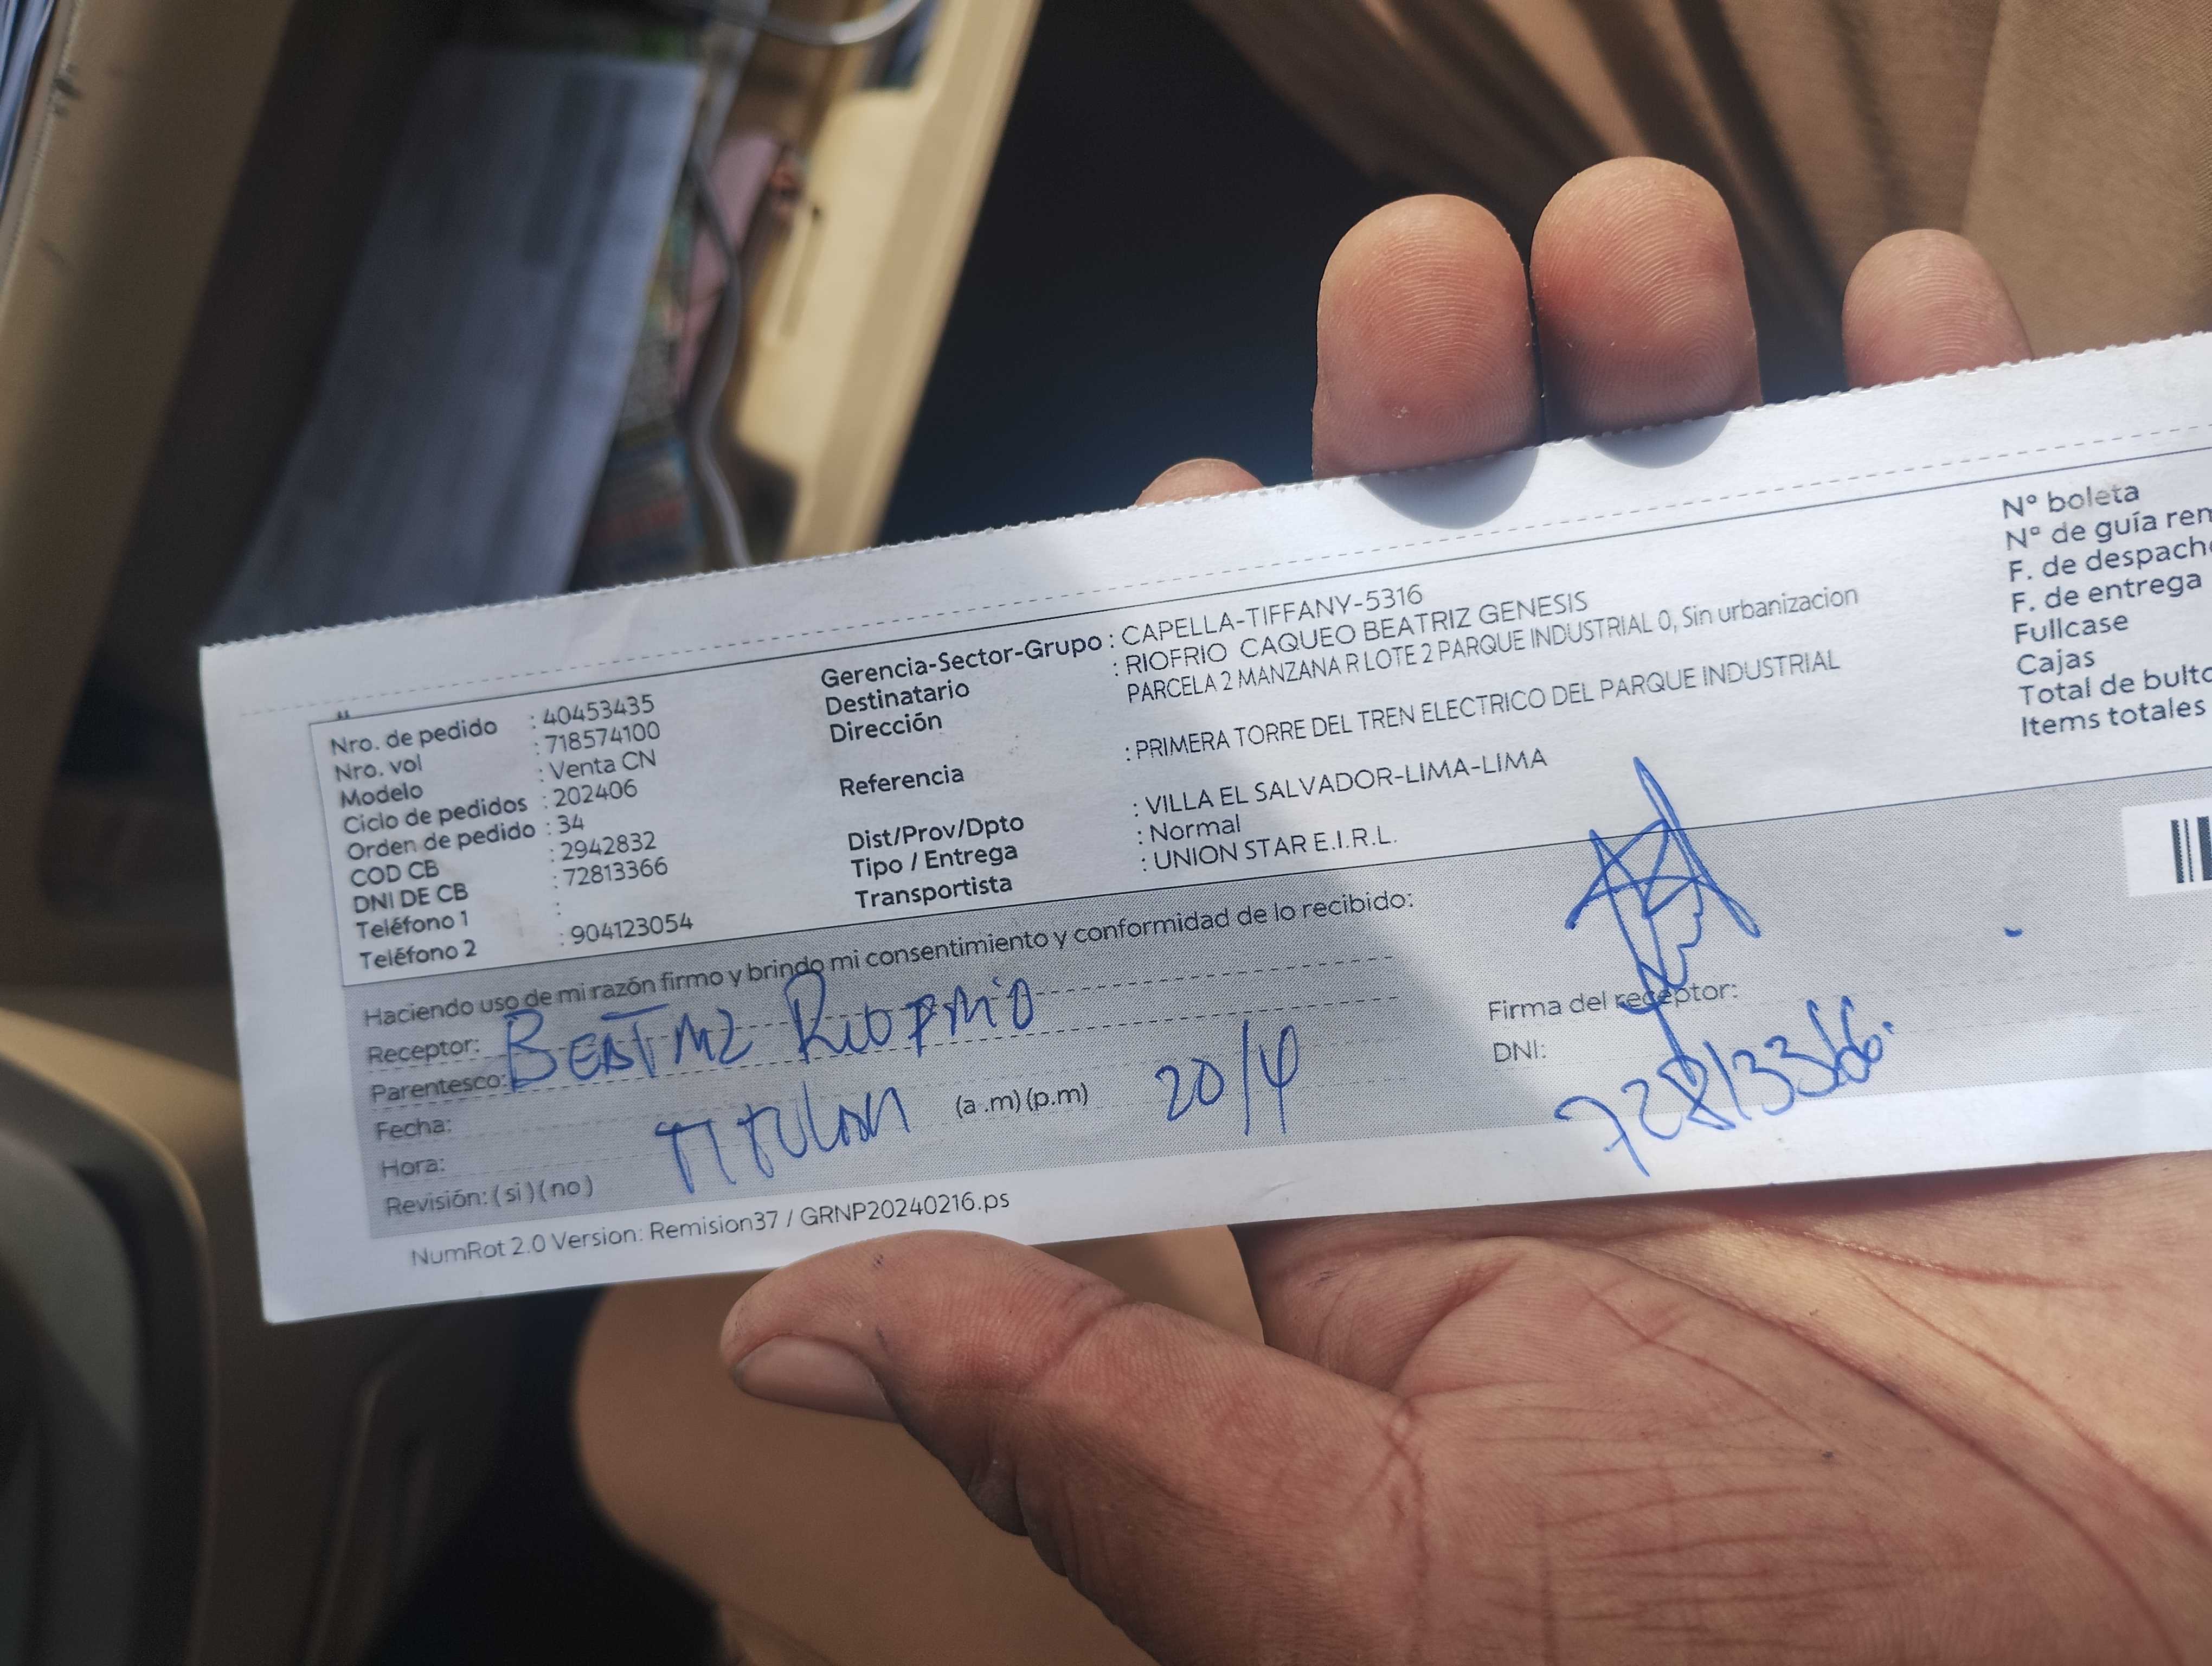 Nro. de pedido : 40453435
Nro. vol : 718574100
Modelo : Venta CN
Ciclo de pedidos : 202406
Orden de pedido : 34
COD CB : 2942832
DNI DE CB : 72813366
Teléfono 1 :
Teléfono 2 : 904123054
Gerencia-Sector-Grupo : CAPELLA-TIFFANY-5316
Destinatario : RIOFRIO CAQUEO BEATRIZ GENESIS
Dirección PARCELA 2 MANZANA R LOTE 2 PARQUE INDUSTRIAL 0, Sin urbanizacion
Referencia : PRIMERA TORRE DEL TREN ELECTRICO DEL PARQUE INDUSTRIAL
Dist/Prov/Dpto : VILLA EL SALVADOR-LIMA-LIMA
Tipo / Entrega : Normal
Transportista : UNION STAR E.I.R.L.
Nº boleta
Nº de guía rem
F. de despach
F. de entrega
Fullcase
Cajas
Total de bulto
Items totales
Haciendo uso de mi razón firmo y brindo mi consentimiento y conformidad de lo recibido:
Receptor: BEATRIZ RIOFRIO
Parentesco:
Fecha:
TITULAR (a .m) (p.m) 20/4
Hora:
Revisión: ( si ) ( no )
Firma del receptor:
DNI: 72813366.
NumRot 2.0 Version: Remision37 / GRNP20240216.ps